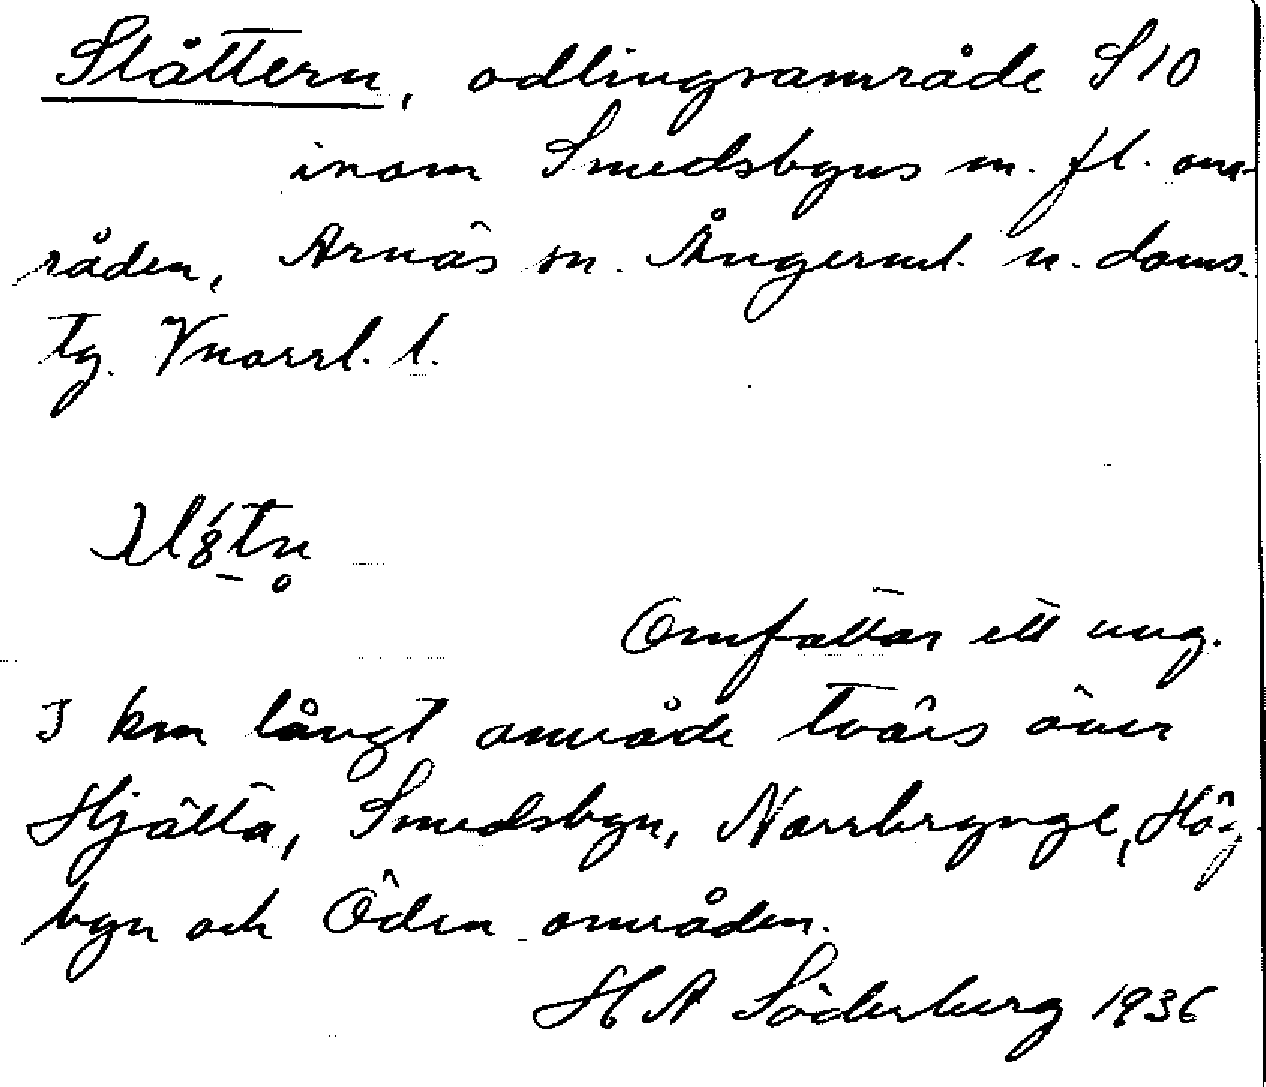 Slåttern, odlingsområde S 10
inom Smedsbyns m. fl. om-
råden, Arnäs sn. Ångerml. n. doms.
tg. Vnorrl. l.
Omfattar ett ung.
3 km långt område tvärs över
Hjälta, Smedsbyn, Norrbrynge, Hög-
byn och Öden områden.
H A Söderberg 1936